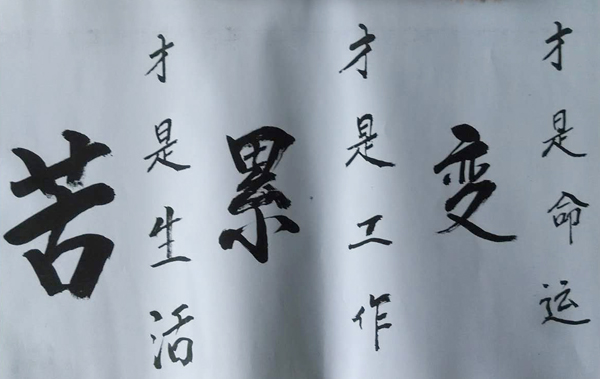 苦
才是生活
累
才是工作
变
才是命运